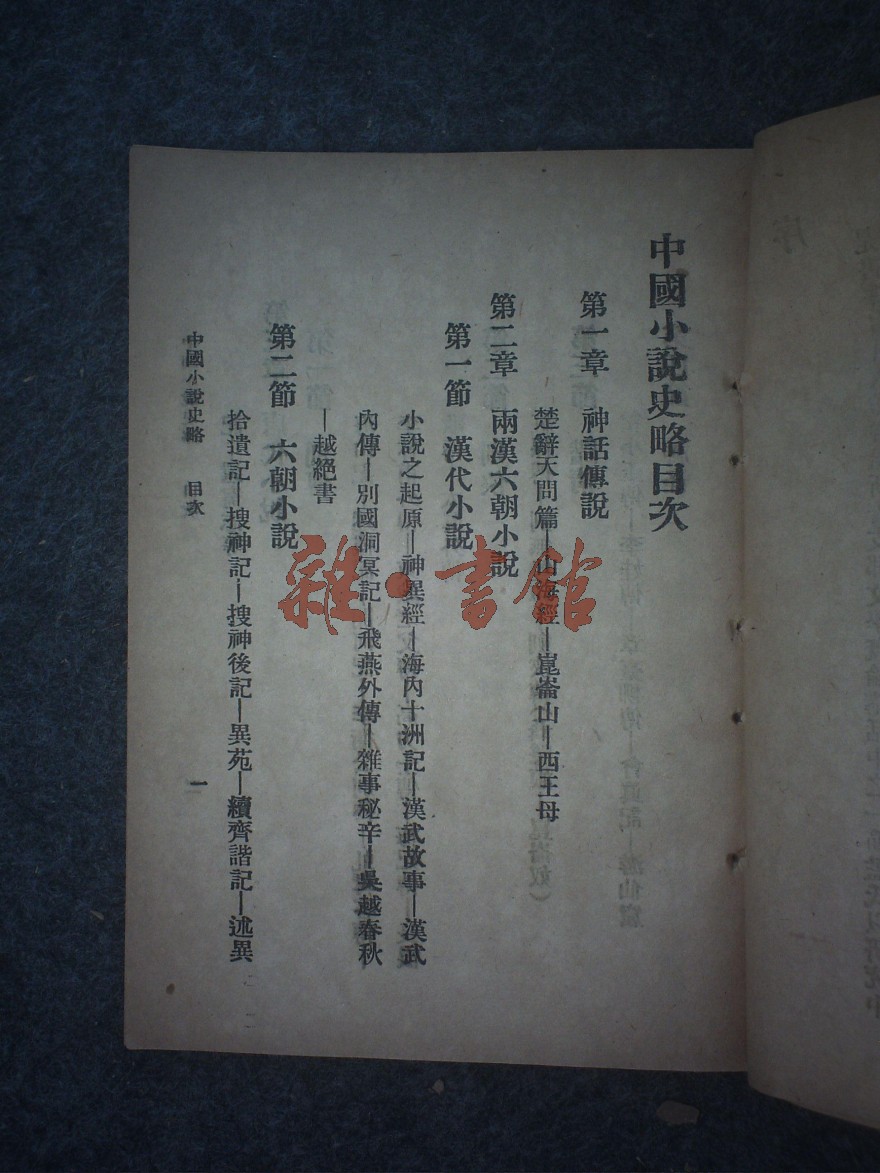 中國小說史略目次
第一章 神話傳說
楚辭天問篇—山海經—崑崙山—西王母
第二章 兩漢六朝小說
第一節 漢代小說
小說之起原—神異經—海內十洲記—漢武故事—漢武
內傳—別國洞冥記—飛燕外傳—雜事秘辛—吳越春秋
—越絕書
第二節 六朝小說
拾遺記—搜神記—搜神後記—異苑—續齊諧記—述異
中國小說史略 目次 一
雜·書館